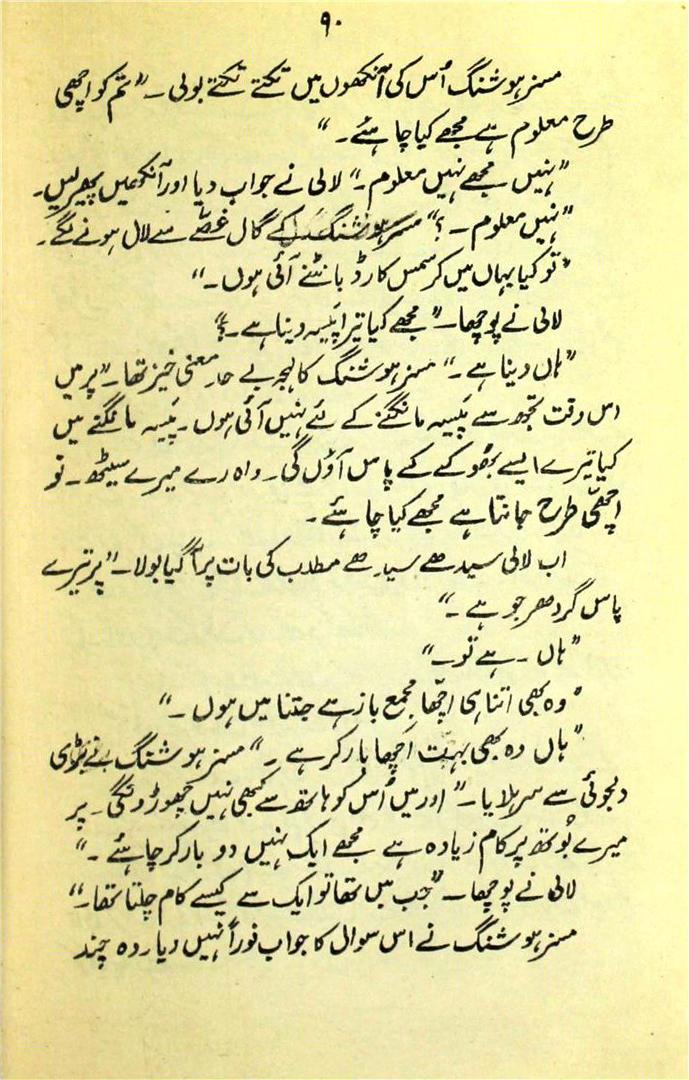 ۹۰
مسز ہوشنگ اُس کی آنکھوں میں تکتے تکتے بولی ۔ "تم کو اچھی
طرح معلوم ہے مجھے کیا چاہئے ۔"
"نہیں مجھے نہیں معلوم ۔" لالی نے جواب دیا اور آنکھیں پھیر لیں ۔
"نہیں معلوم ۔ ؟" مسز ہوشنگ کے گال غصّے سے لال ہونے لگے ۔
"تو کیا یہاں میں کرسمس کارڈ بانٹنے آئی ہوں ۔"
لالی نے پوچھا ۔ "مجھے کیا تیرا پیسہ دینا ہے ۔ ؟"
"ہاں دینا ہے ۔" مسز ہوشنگ کا لہجہ بے حد معنی خیز تھا ۔ "پر میں
اس وقت تجھ سے پیسہ مانگنے کے لئے نہیں آئی ہوں ۔ پیسہ مانگنے میں
کیا تیرے ایسے بھُوکے کے پاس آؤں گی ۔ واہ رے میرے سیٹھ ۔ تو
اچھی طرح جانتا ہے مجھے کیا چاہئے ۔
اب لالی سیدھے سیدھے مطلب کی بات پر آگیا بولا ۔ "پر تیرے
پاس گردھر جو ہے ۔"
"ہاں ۔ ہے تو ۔"
"وہ بھی اتنا ہی اچھا مجمع باز ہے جتنا میں ہوں ۔"
"ہاں وہ بھی بہت اچھا بارکر ہے ۔" مسز ہوشنگ نے بڑی
دلجوئی سے سر ہلایا ۔ "اور میں اُس کو ہاتھ سے کبھی نہیں چھوڑونگی ۔ پر
میرے بُوتھ پر کام زیادہ ہے مجھے ایک نہیں دو بارکر چاہئے ۔"
لالی نے پوچھا ۔ "جب میں تھا تو ایک سے کیسے کام چلتا تھا ۔"
مسز ہوشنگ نے اس سوال کا جواب فوراً نہیں دیا ۔ وہ چند